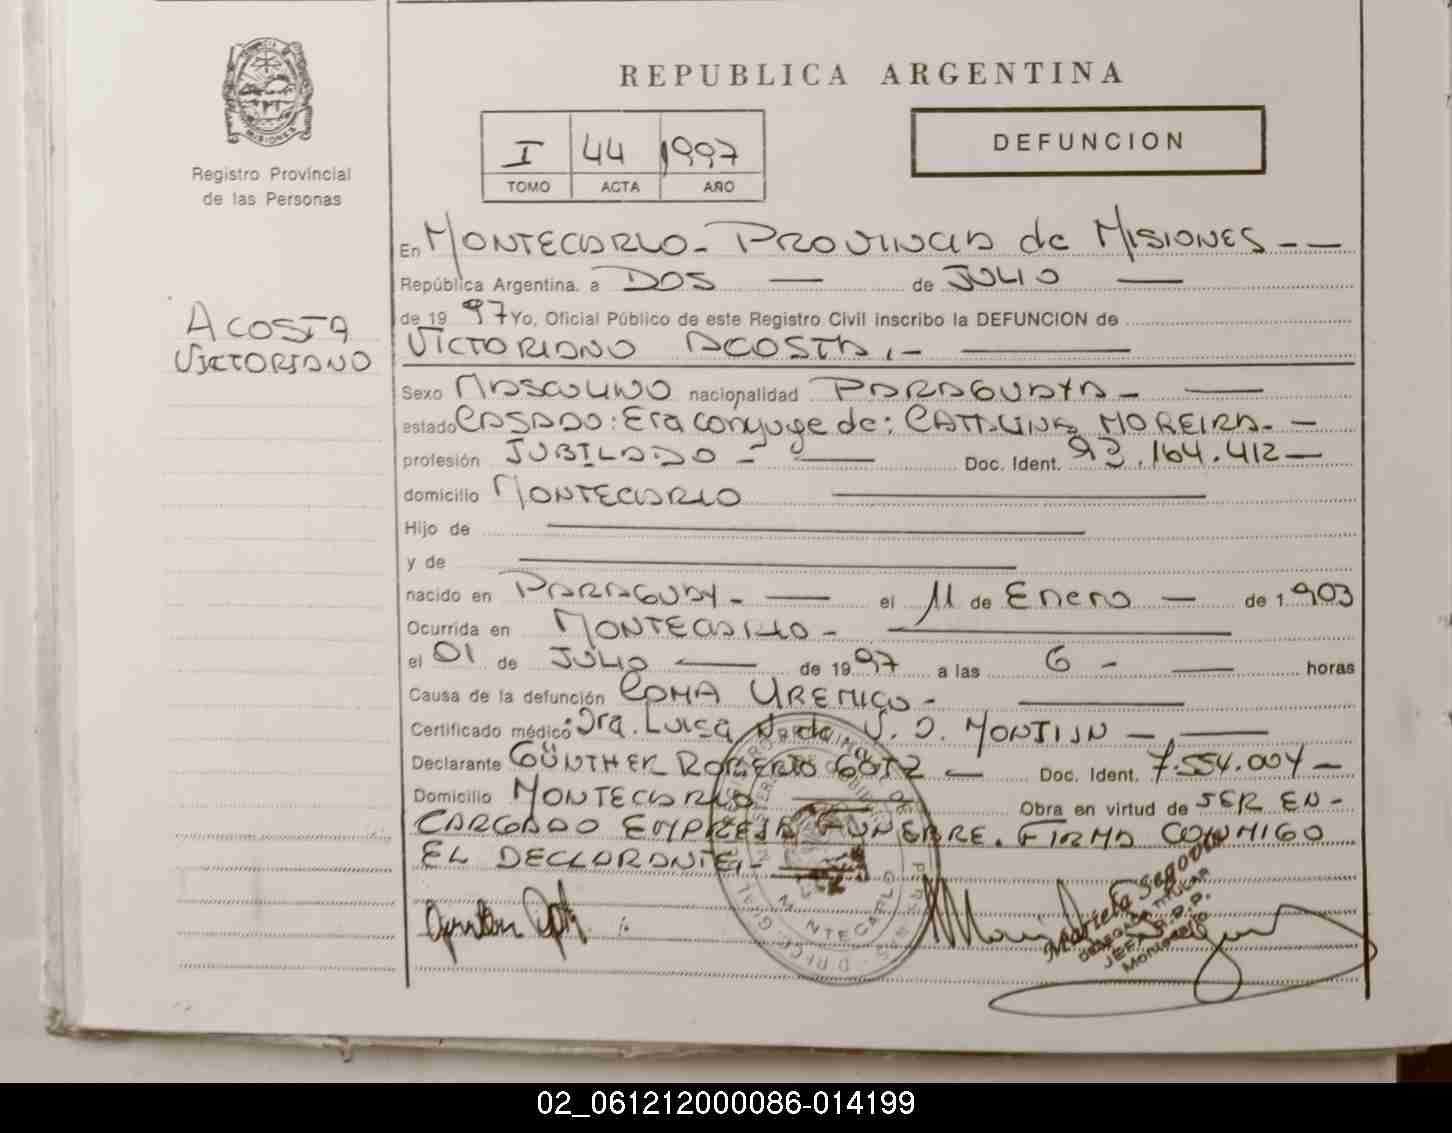 REPUBLICA ARGENTINA
I 44 1997
TOMO ACTA AÑO
DEFUNCION
MISIONES
Registro Provincial
de las Personas
ACOSTA
VICTORIANO
En MONTECARLO - PROVINCIA de MISIONES - -
República Argentina. a DOS — de JULIO —
de 19 97 Yo, Oficial Público de este Registro Civil inscribo la DEFUNCION de
VICTORIANO ACOSTA.- —
Sexo MASCULINO nacionalidad PARAGUAYA - —
estado CASADO: Era conyuge de: CATALINA MOREIRA - —
profesión JUBILADO - — Doc. Ident. 93.164.412 —
domicilio MONTECARLO —
Hijo de —
y de —
nacido en PARAGUAY - — el 11 de Enero — de 1 903
Ocurrida en MONTECARLO - —
el 01 de JULIO — de 19 97 a las 6 - — horas
Causa de la defunción COMA UREMICO - —
Certificado médico: Dra. LUISA de V. D. MONTIJN - , —
Declarante GÜNTHER ROBERTO GÖTZ — Doc. Ident. 7.554.004 —
Domicilio MONTECARLO — Obra en virtud de SER EN-
CARGADO EMPRESA FUNEBRE. FIRMA CONMIGO
EL DECLARANTE,- —
MONTECARLO
Mariela Segovia
JEFE R.P.P.
Montecarlo
02_061212000086-014199